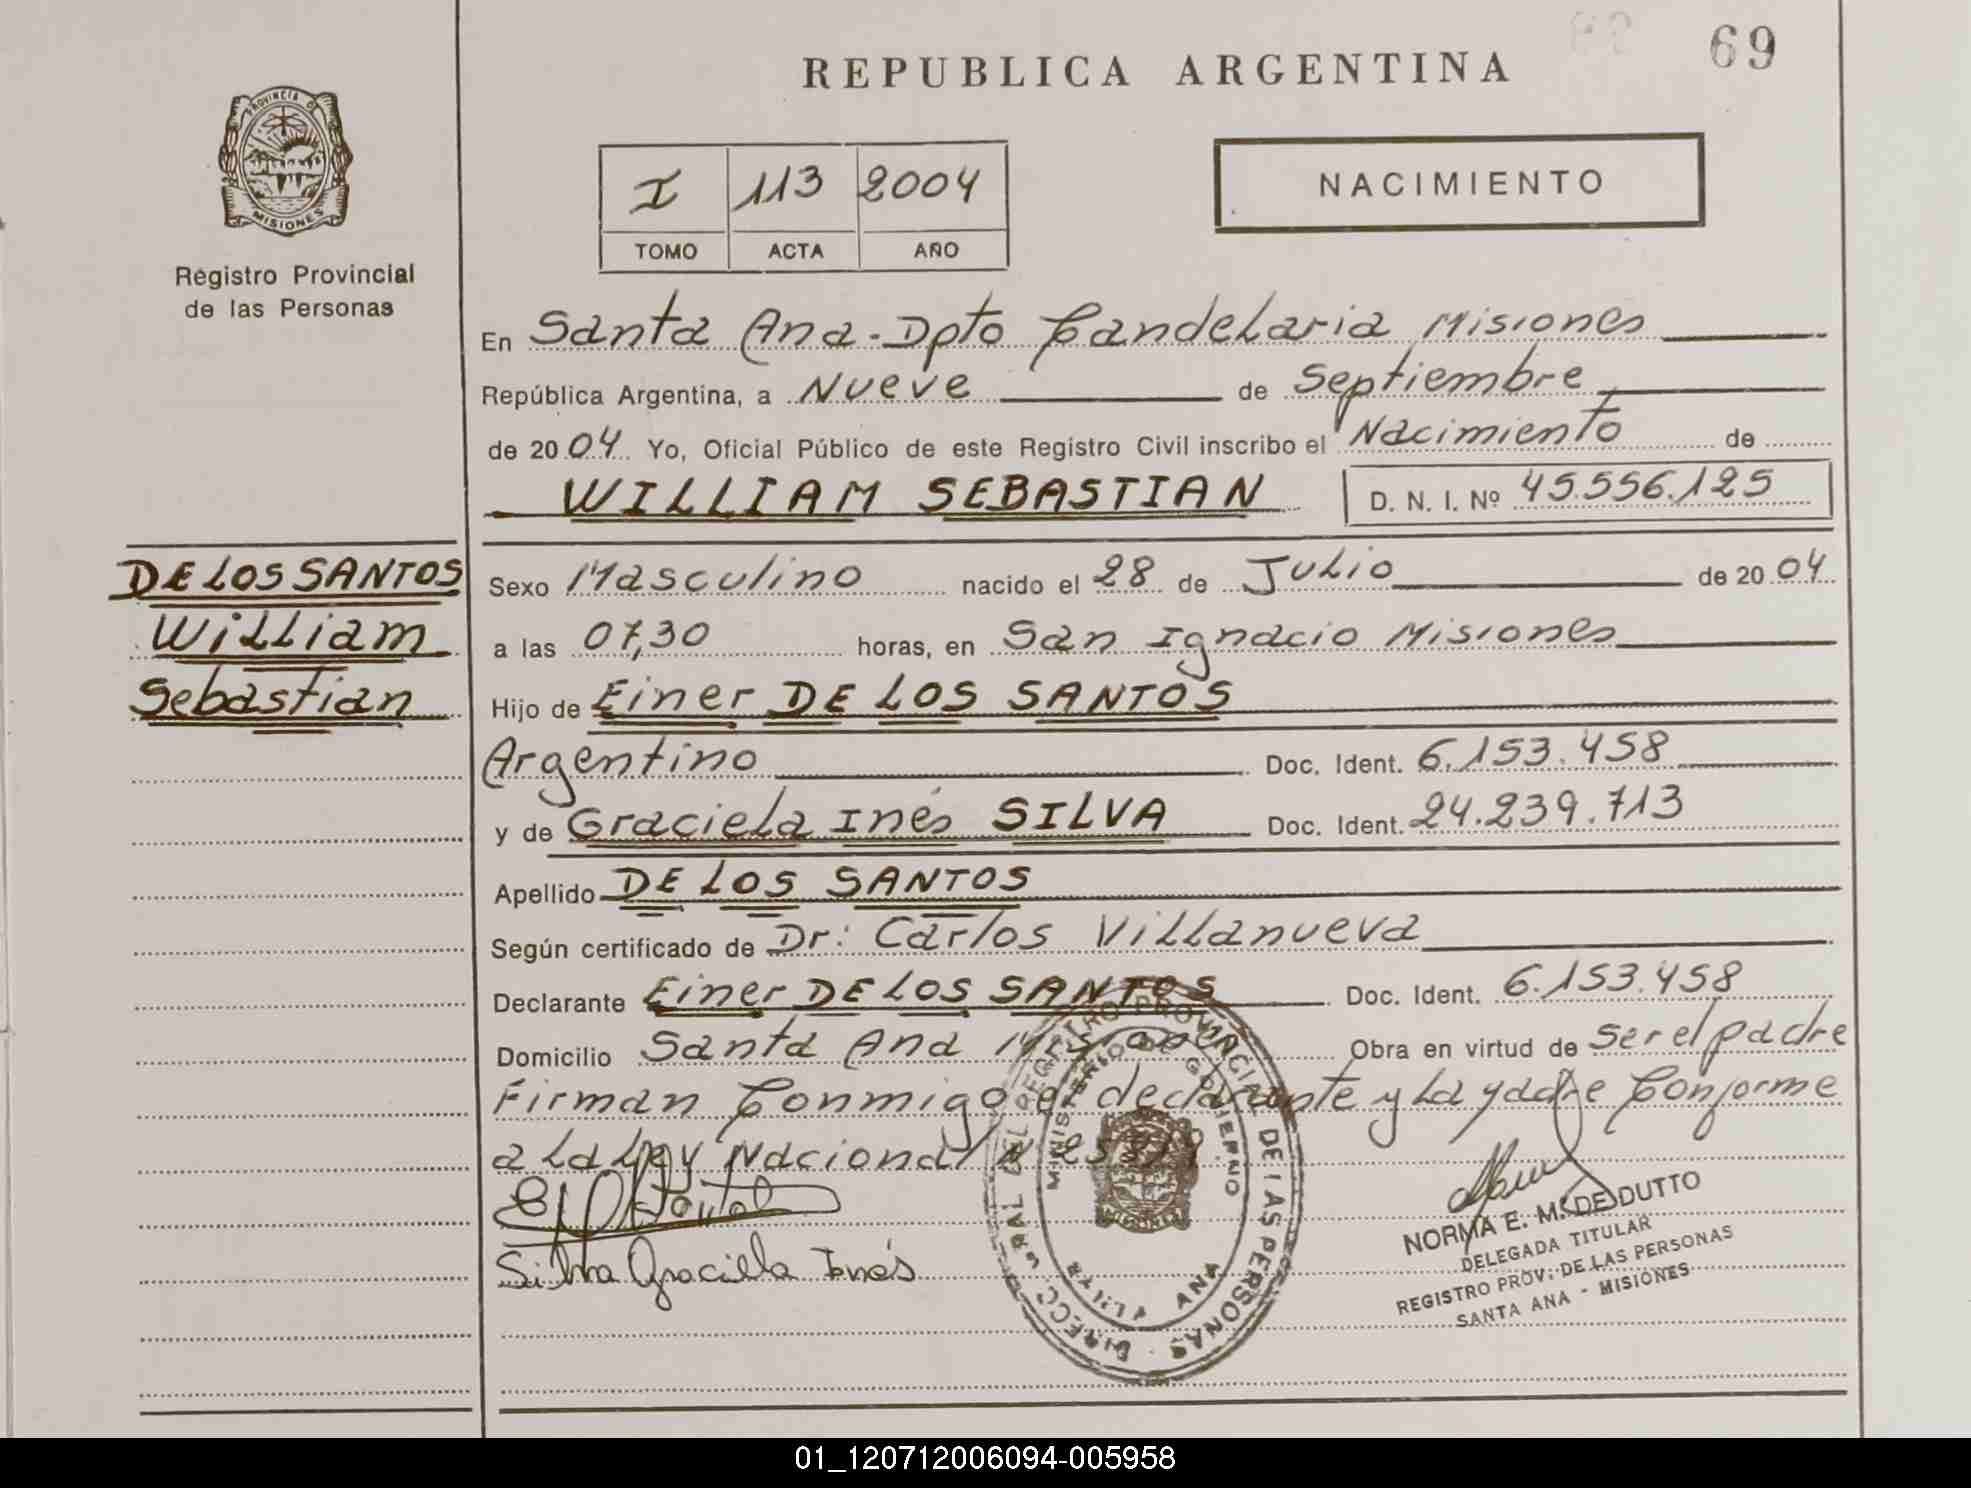 REPUBLICA ARGENTINA
69
PROVINCIA DE
MISIONES
Registro Provincial
de las Personas
I 113 2004
TOMO ACTA AÑO
NACIMIENTO
En Santa Ana - Dpto Candelaria Misiones
República Argentina, a Nueve de Septiembre
de 2004 Yo, Oficial Público de este Registro Civil inscribo el Nacimiento de
WILLIAM SEBASTIAN D. N. I. Nº 45.556.125
DE LOS SANTOS
William
Sebastian
Sexo Masculino nacido el 28 de Julio de 2004
a las 07,30 horas, en San Ignacio Misiones
Hijo de Einer DE LOS SANTOS
Argentino Doc. Ident. 6.153.458
y de Graciela Inés SILVA Doc. Ident. 24.239.713
Apellido DE LOS SANTOS
Según certificado de Dr: Carlos Villanueva
Declarante Einer DE LOS SANTOS Doc. Ident. 6.153.458
Domicilio Santa Ana Misiones Obra en virtud de ser el padre
Firman Conmigo el declarante y La Conforme
a La Ley Nacional N
Silva Graciela Inés
REGISTRO PROVINCIAL DE LAS PERSONAS
MINISTERIO DE GOBIERNO
ANA
MISIONES
NORMA E. M. DE DUTTO
DELEGADA TITULAR
REGISTRO PROV. DE LAS PERSONAS
SANTA ANA - MISIONES
01_120712006094-005958